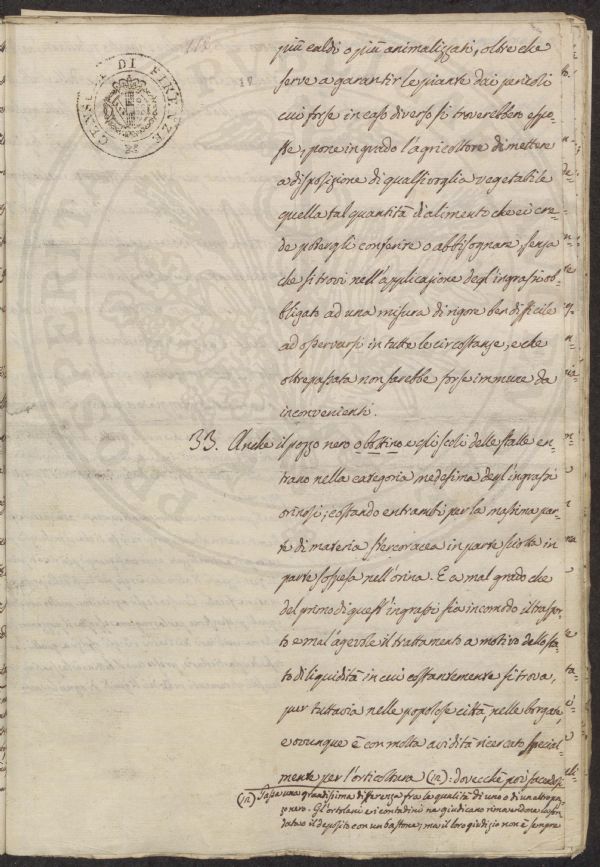 118
CENSURA DI FIRENZE
più caldi o più animalizzati, oltre che
serve a garantir le piante dai pericoli
cui forse in caso diverso si troverebbero espo-
ste, pone in grado l'agricoltore di mettere
a disposizione di qualsivoglia vegetabile
quella tal quantità d'alimento che ei cre-
de potergli conferire o abbisognare, senza
che si trovi nell'applicazione degl'ingrassi ob-
bligato ad una misura di rigore ben difficile
ad osservarsi in tutte le circostanze, e che
oltrepassata non sarebbe forse immune da
inconvenienti.
33. Anche il pozzo nero o bottino e gli scoli delle stalle en-
trano nella categoria medesima degl'ingrassi
orinosi; costando entrambi per la massima par-
te di materia stercoracea in parte sciolta in
parte sospesa nell'orina. E a mal grado che
del primo di quest'ingrassi sia incomodo il traspor-
to e mal'agevole il trattamento a motivo dello sta-
to di liquidità in cui costantemente si trova,
pur tuttavia nelle popolose città, nelle borgate,
e ovunque è con molta avidità ricercato special-
mente per l'orticoltura (12): dovecchè poi
(12) Passa una grandissima differenza fra la qualità di uno o di un altro poz-
zo nero. Gl'ortolani e i contadini ne giudicano rimenandone
il deposito con un bastone; ma il loro giudizio non è sempre